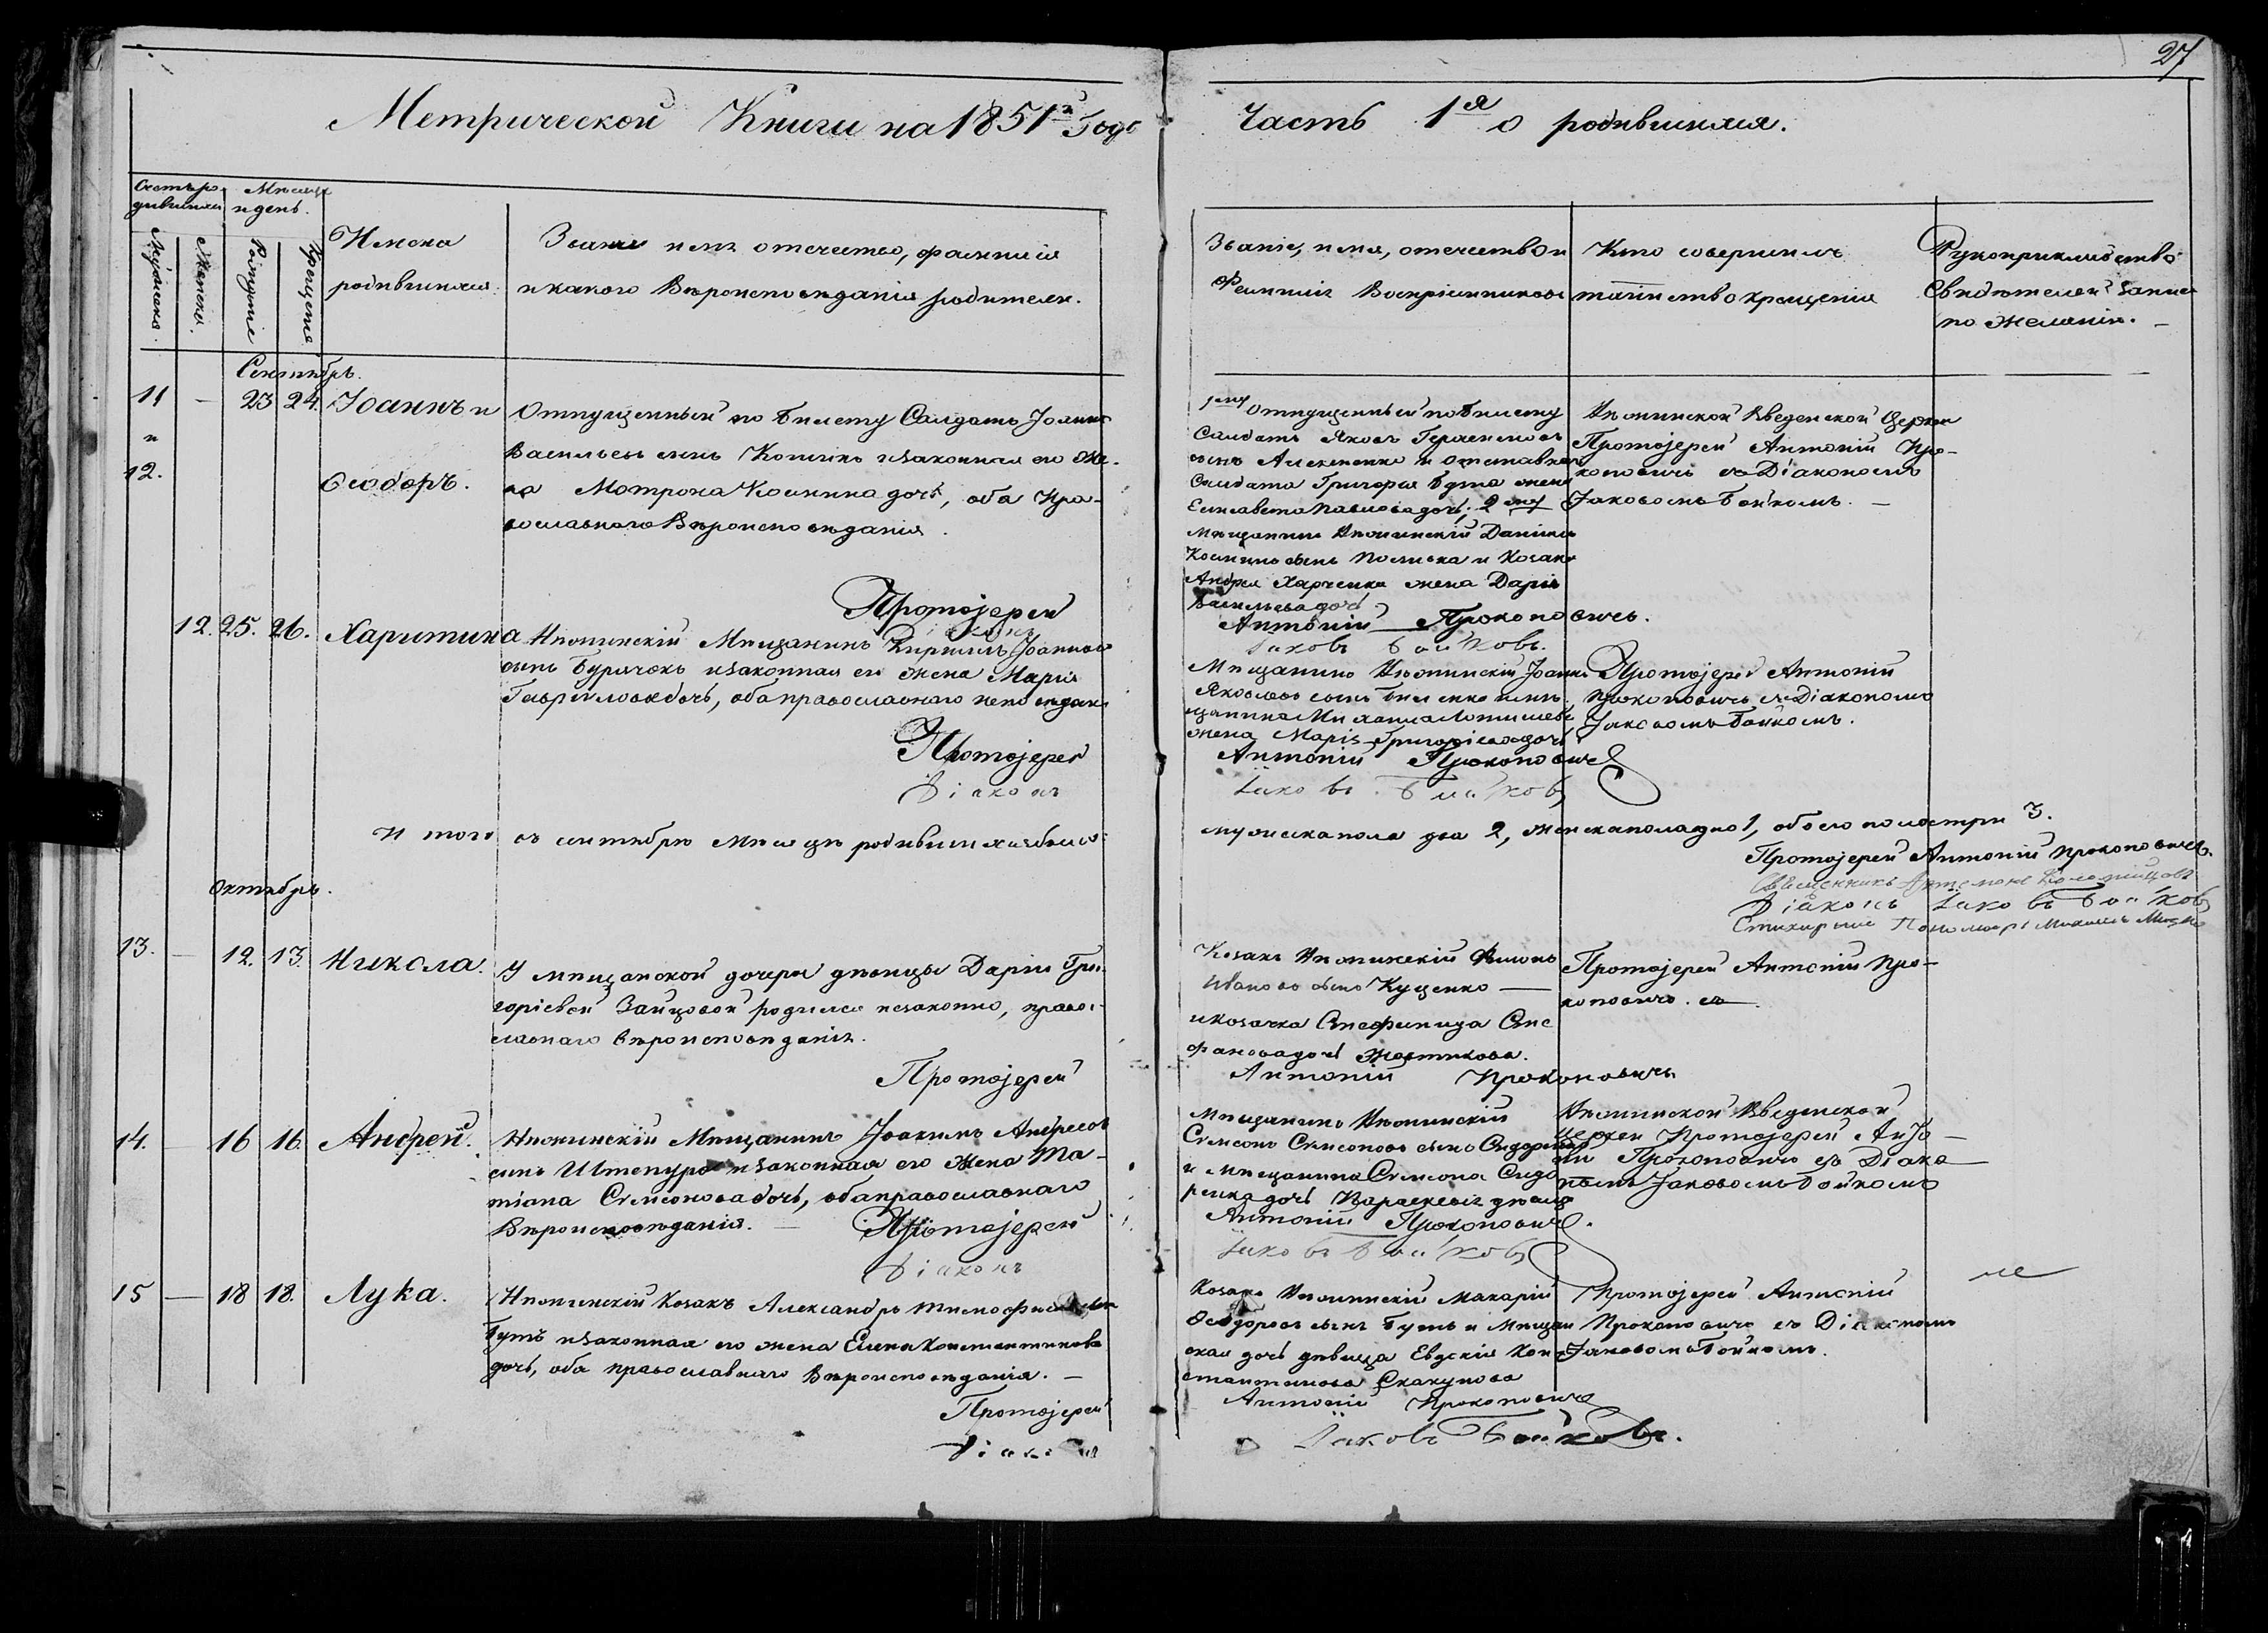 27
Метрической Книги на 1851й Годъ
Часть 1я о родившихся.
Счетъ ро-
дившихся
Мѣсяцъ
и день.
Мужеска.
Женска.
Рожденіе
Крещеніе
Имена
родившихся.
Званіе имя отечество, фамилія
и какого Вѣроисповѣданія родители.
Званіе, имя, отечество и
Фамилія Воспріемниковъ
Кто совершилъ
таинство крещенія
Рукоприкладство
Свидѣтелей записи
по желанію.
Сентябрь.
11 — 23 24. Іоаннъ и
и
12. Ѳеодоръ.
Отпущенный по билету Салдатъ Іоаннъ
Васильевъ сынъ и законная его Же-
на Матрона Космина дочь, оба Пра-
вославнаго Вѣроисповѣданія.
Протоіерей
1му Отпущенный по билету
Салдатъ Яковъ
сынъ Алексеенко и отставнаго
Салдата Григорія Бута жена
Елисавета Павлова дочь; 2му
Мѣщанинъ Даніилъ
Косминъ сынъ и Козака
Андрея Харченка жена Дарія
Васильева дочь
Антоній Прокоповичъ.
Іаковъ Бойковъ.
Введенской Церкви
Протоіерей Антоній Про-
коповичъ съ Діакономъ
Іаковомъ Бойкомъ. —
12. 25. 26. Харитина
Мѣщанинъ Кириллъ Іоанновъ
сынъ Бурячокъ и законная его жена Марія
Гаврилова дочь, оба православнаго исповѣданія
Протоіерей
Діаконъ
Мѣщанинъ Іоаннъ
Яковлевъ сынъ
щанина Михаила
жена Марія Григоріева дочь
Антоній Прокоповичъ
Іаковъ Бойковъ
Протоіерей Антоній
Прокоповичъ съ Діакономъ
Іаковомъ Бойкомъ.
И того въ сентябрѣ мѣсяцѣ родившихся было
мужеска пола два 2, женска пола одно 1, обоего пола три 3.
Протоіерей Антоній Прокоповичъ.
Священникъ
Діаконъ Іаковъ Бойковъ
Стихарный Пономарь Михаилъ
Октябрь.
13. — 12. 13. Никола.
У мѣщанской дочери дѣвицы Даріи Гри-
горіевой Зайцовой родился незаконно, право-
славнаго вѣроисповѣданія.
Протоіерей
Козакъ
Ивановъ сынъ Куценко —
и козачка Стефанида Сте
фанова дочь
Антоній Прокоповичъ
Протоіерей Антоній Про-
коповичъ. съ —
14. — 16 16. Андрей.
Мѣщанинъ Іоакимъ Андреевъ
сынъ Штепура и законная его жена Та-
тіана Семенова дочь, оба православнаго
Вѣроисповѣданія. — Протоіерей
Діаконъ
Мѣщанинъ
Семенъ Семеновъ сынъ Сидоренко
и мѣщанина Семена Сидо
ренка дочь Параскевія дѣвица
Антоній Прокоповичъ.
Іаковъ Бойковъ
Введенской
Церкви Протоіерей Анто —
ній Прокоповичъ съ Діако —
номъ Іаковомъ Бойкомъ
15 — 18 18. Лука.
Козакъ Александръ
Бутъ и законная его жена Елена Константинова
дочь, оба православнаго Вѣроисповѣданія. —
Протоіерей
Діаконъ
Козакъ Макарій
Ѳеодоровъ сынъ Бутъ и Мѣщан
ская дочь дѣвица Евдокія Кон-
стантинова Скакунова
Антоній Прокоповичъ
Іаковъ Бойковъ.
Протоіерей Антоній
Прокоповичъ съ Діакономъ
Іаковомъ Бойкомъ.